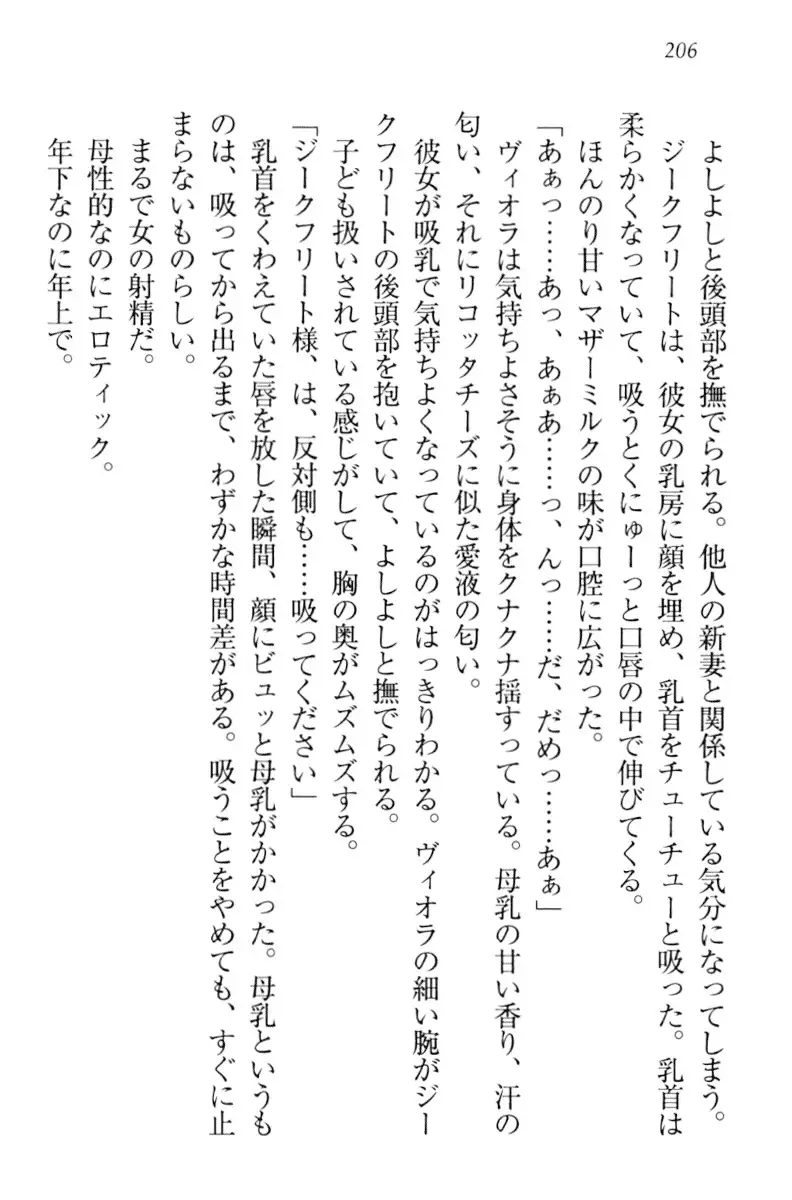 206
よしよしと後頭部を撫でられる。他人の新妻と関係している気分になってしまう。
ジークフリートは、彼女の乳房に顔を埋め、乳首をチューチューと吸った。乳首は
柔らかくなっていて、吸うとくにゅーっと口唇の中で伸びてくる。
ほんのり甘いマザーミルクの味が口腔に広がった。
「あぁっ……あっ、あぁあ……っ、んっ……だ、だめっ……あぁ」
ヴィオラは気持ちよさそうに身体をクナクナ揺すっている。母乳の甘い香り、汗の
匂い、それにリコッタチーズに似た愛液の匂い。
彼女が吸乳で気持ちよくなっているのがはっきりわかる。ヴィオラの細い腕がジー
クフリートの後頭部を抱いていて、よしよしと撫でられる。
子ども扱いされている感じがして、胸の奥がムズムズする。
「ジークフリート様、は、反対側も……吸ってください」
乳首をくわえていた唇を放した瞬間、顔にビュッと母乳がかかった。母乳というも
のは、吸ってから出るまで、わずかな時間差がある。吸うことをやめても、すぐに止
まらないものらしい。
まるで女の射精だ。
母性的なのにエロティック。
年下なのに年上で。